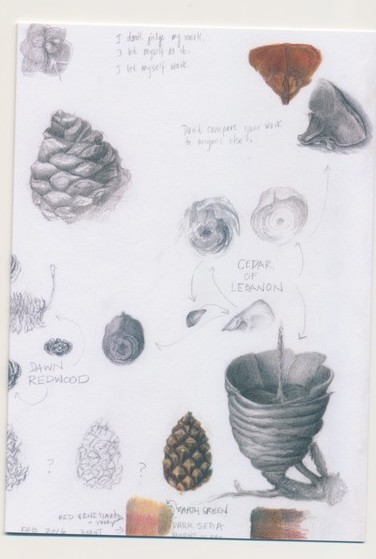 I don't judge my work.
I let myself do it.
I let myself work.
Don't compare your work
to anyone else's.
CEDAR
OF
LEBANON
DAWN
REDWOOD
?
?
RED
EARTH GREEN
FEB 2016
DARK SEPIA